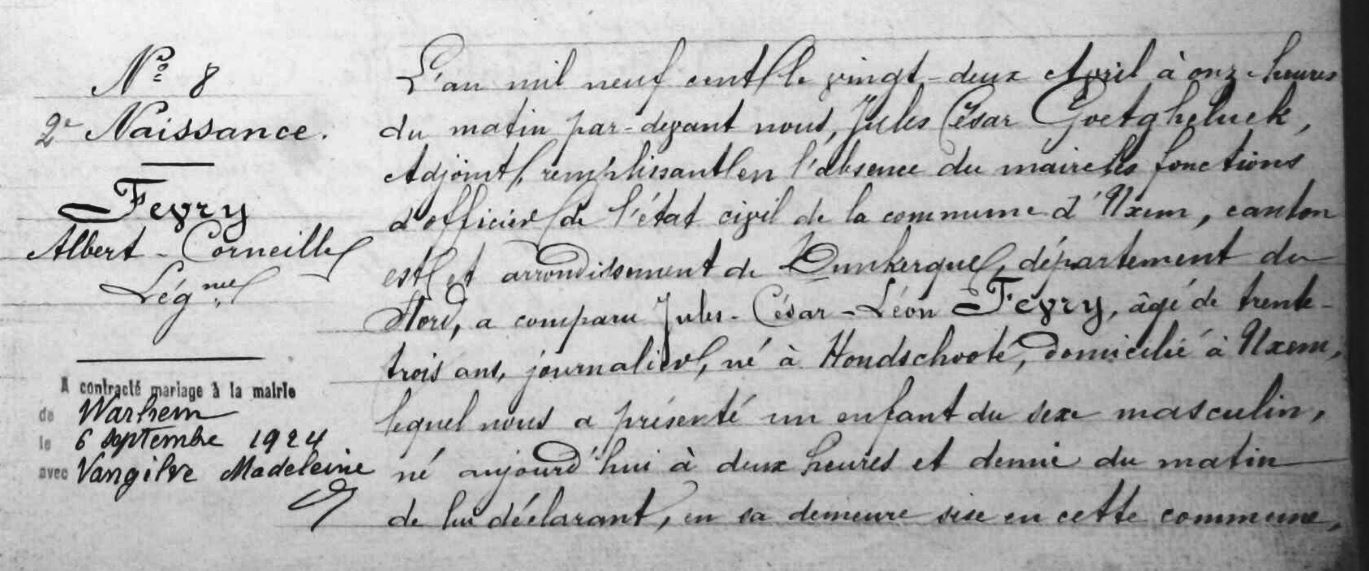 N° 8
2e Naissance.
Fevry
Albert - Corneille
Légme
A contracté mariage à la mairie
de Warhem
le 6 septembre 1924
avec Vangilve Madeleine
L'an mil neuf cent le vingt-deux Avril à onze heures
du matin par-devant nous, Jules César Goetgheluck,
Adjoint, remplissant en l'absence du maire les fonctions
d'officier de l'état civil de la commune d'Uxem, canton
est et arrondissement de Dunkerque, département du
Nord, a comparu Jules-César-Léon Fevry, âgé de trente-
trois ans, journalier, né à Hondschoote, domicilié à Uxem,
lequel nous a présenté un enfant du sexe masculin,
né aujourd'hui à deux heures et demie du matin
de lui déclarant, en sa demeure sise en cette commune,